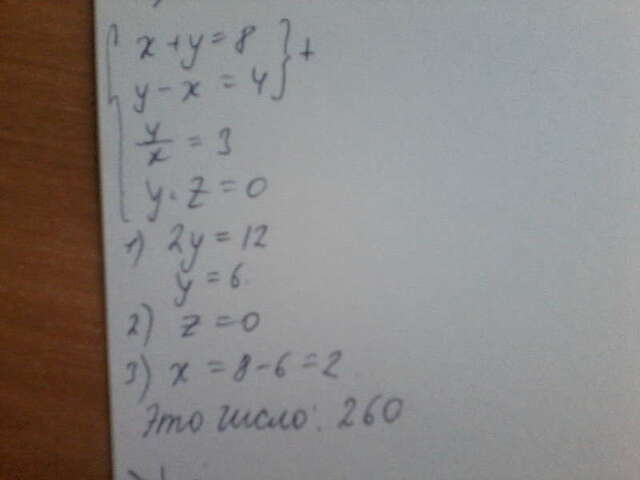 x + y = 8 } +
y - x = 4
y/x = 3
y · z = 0
1) 2y = 12
y = 6
2) z = 0
3) x = 8 - 6 = 2
Это число: 260